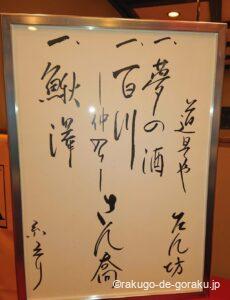 道具や 左ん坊
一、夢の酒
一、百川
ー仲入ー さん喬
一、鰍澤
©rakugo-de-goraku.jp